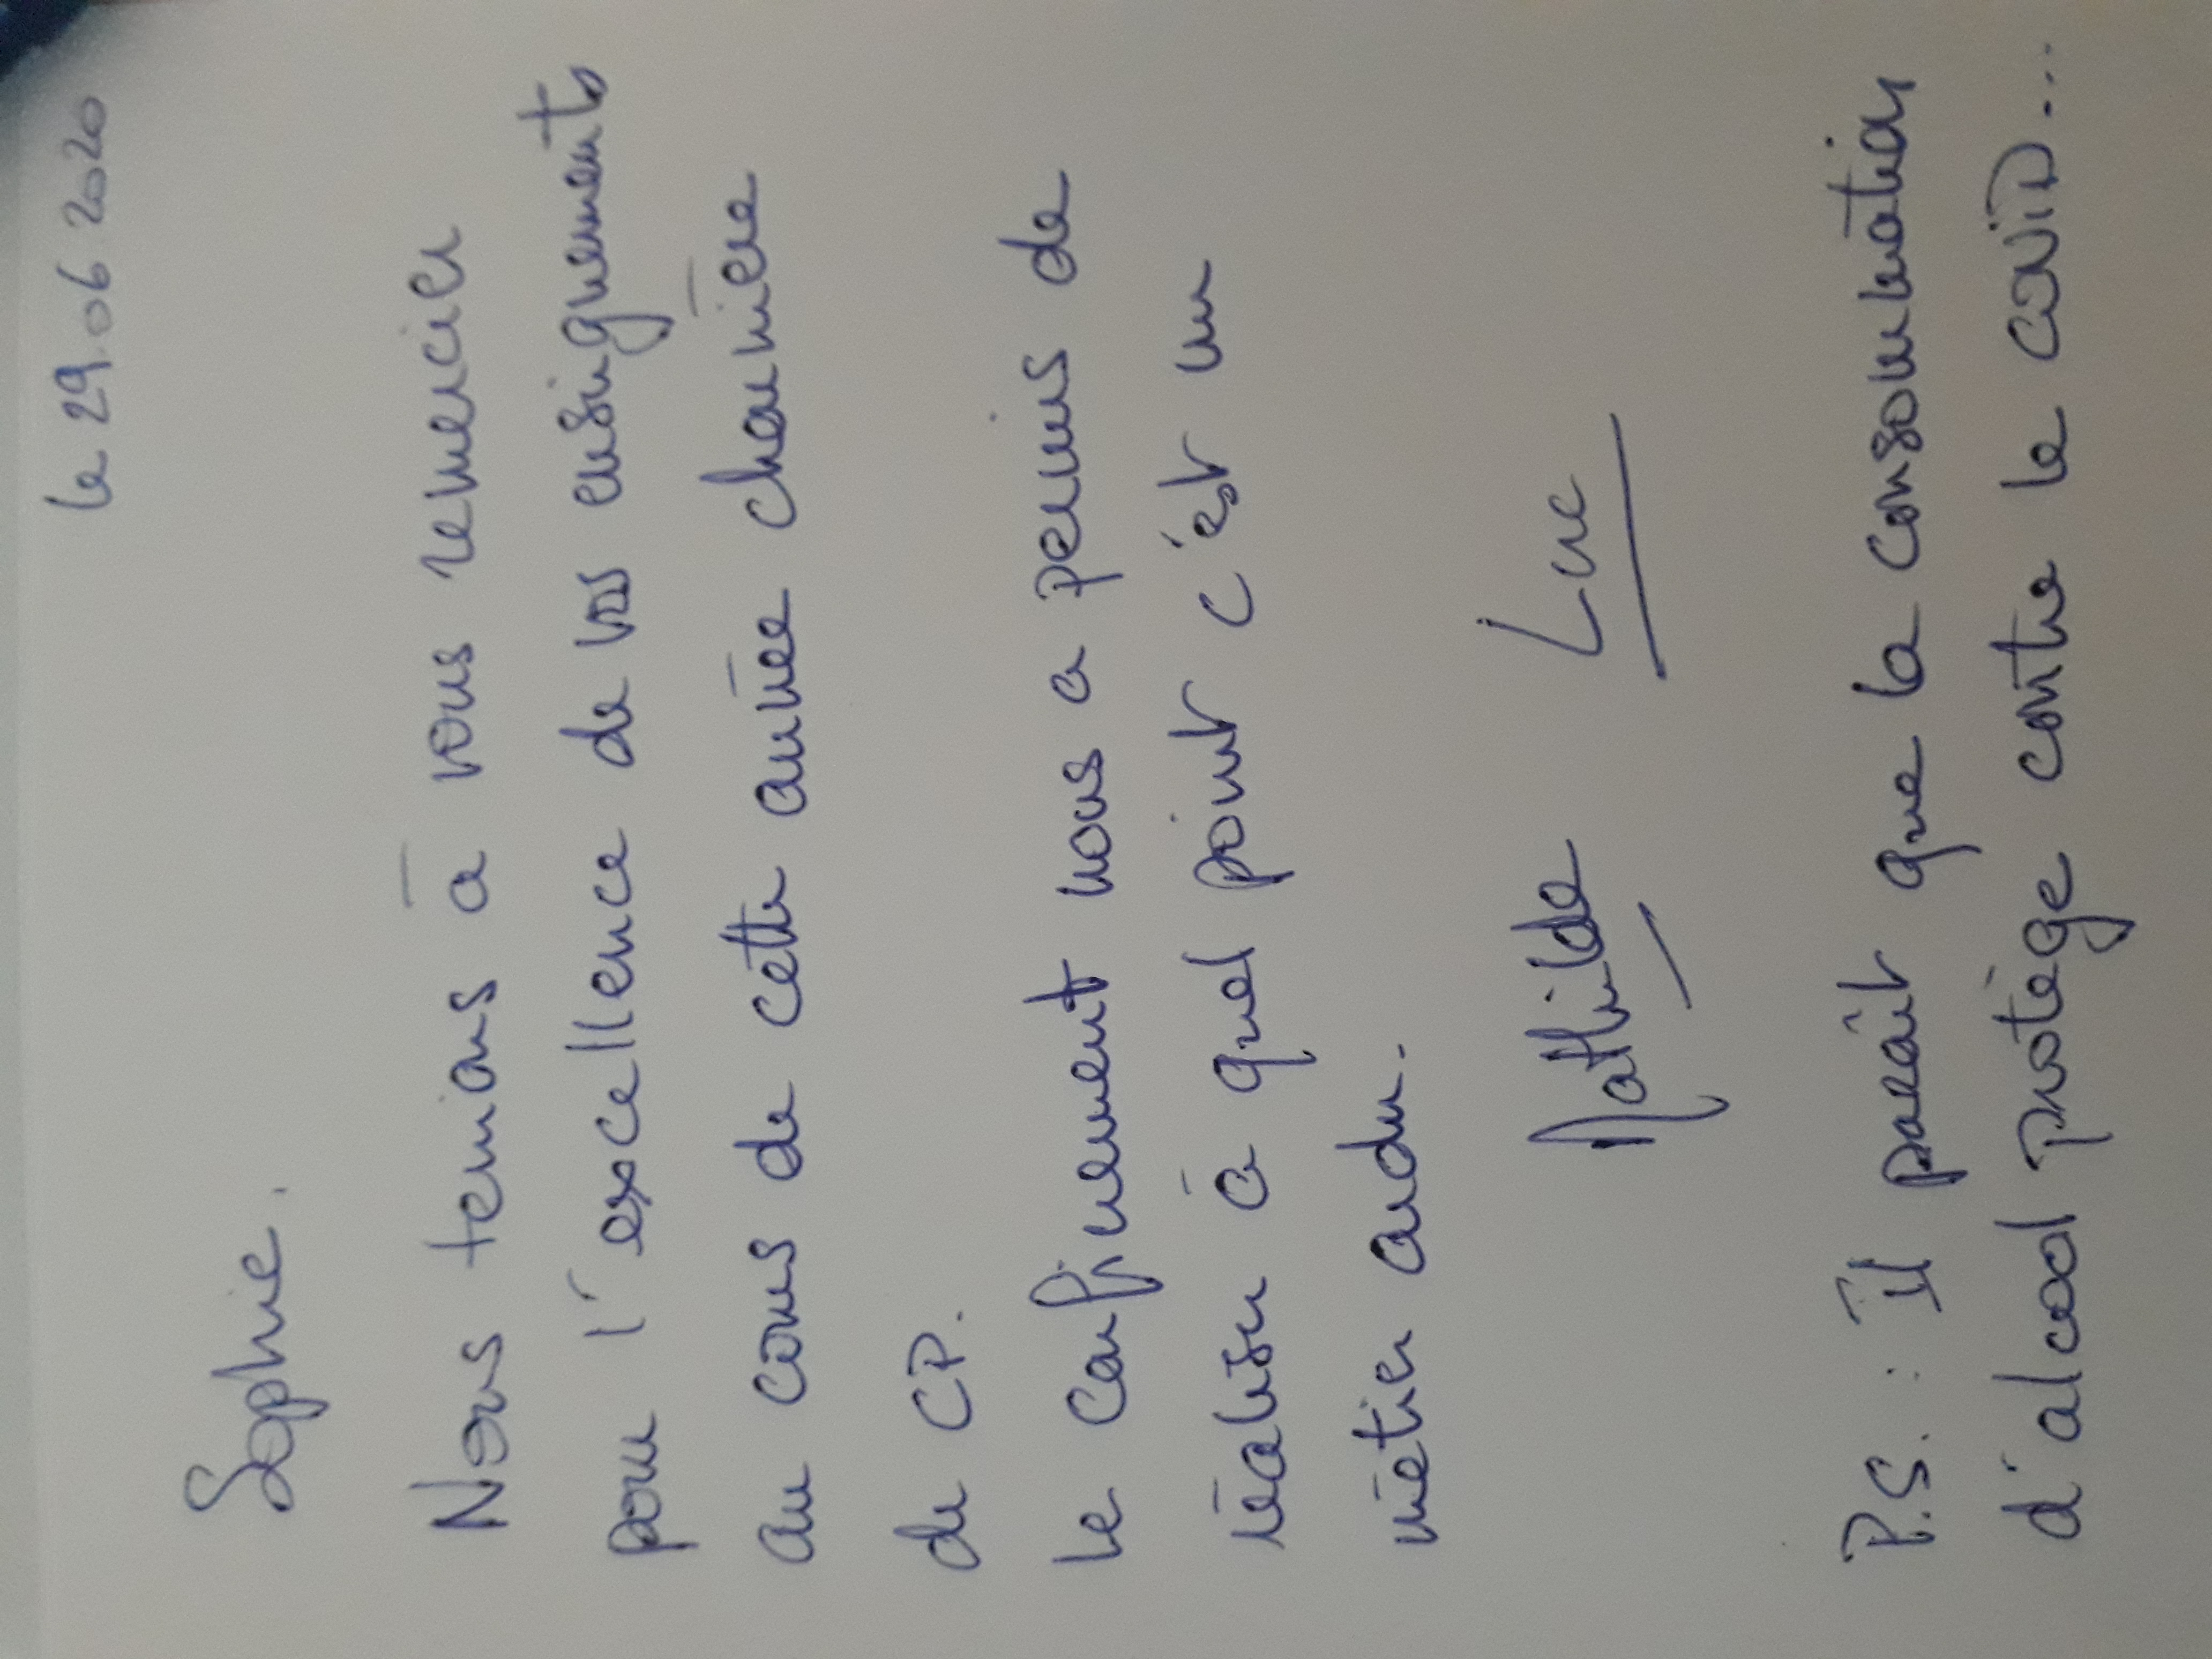 le 29.06.2020
Sophie.
Nous tenions à vous remercier
pour l'excellence de vos ensignements
au cours de cette année charnière
du CP.
le confinement nous a permis de
réaliser à quel point c'est un
métier ardu.
Mathilde Luc
P.S. : Il paraît que la consommation
d'alcool protège contre le COVID...